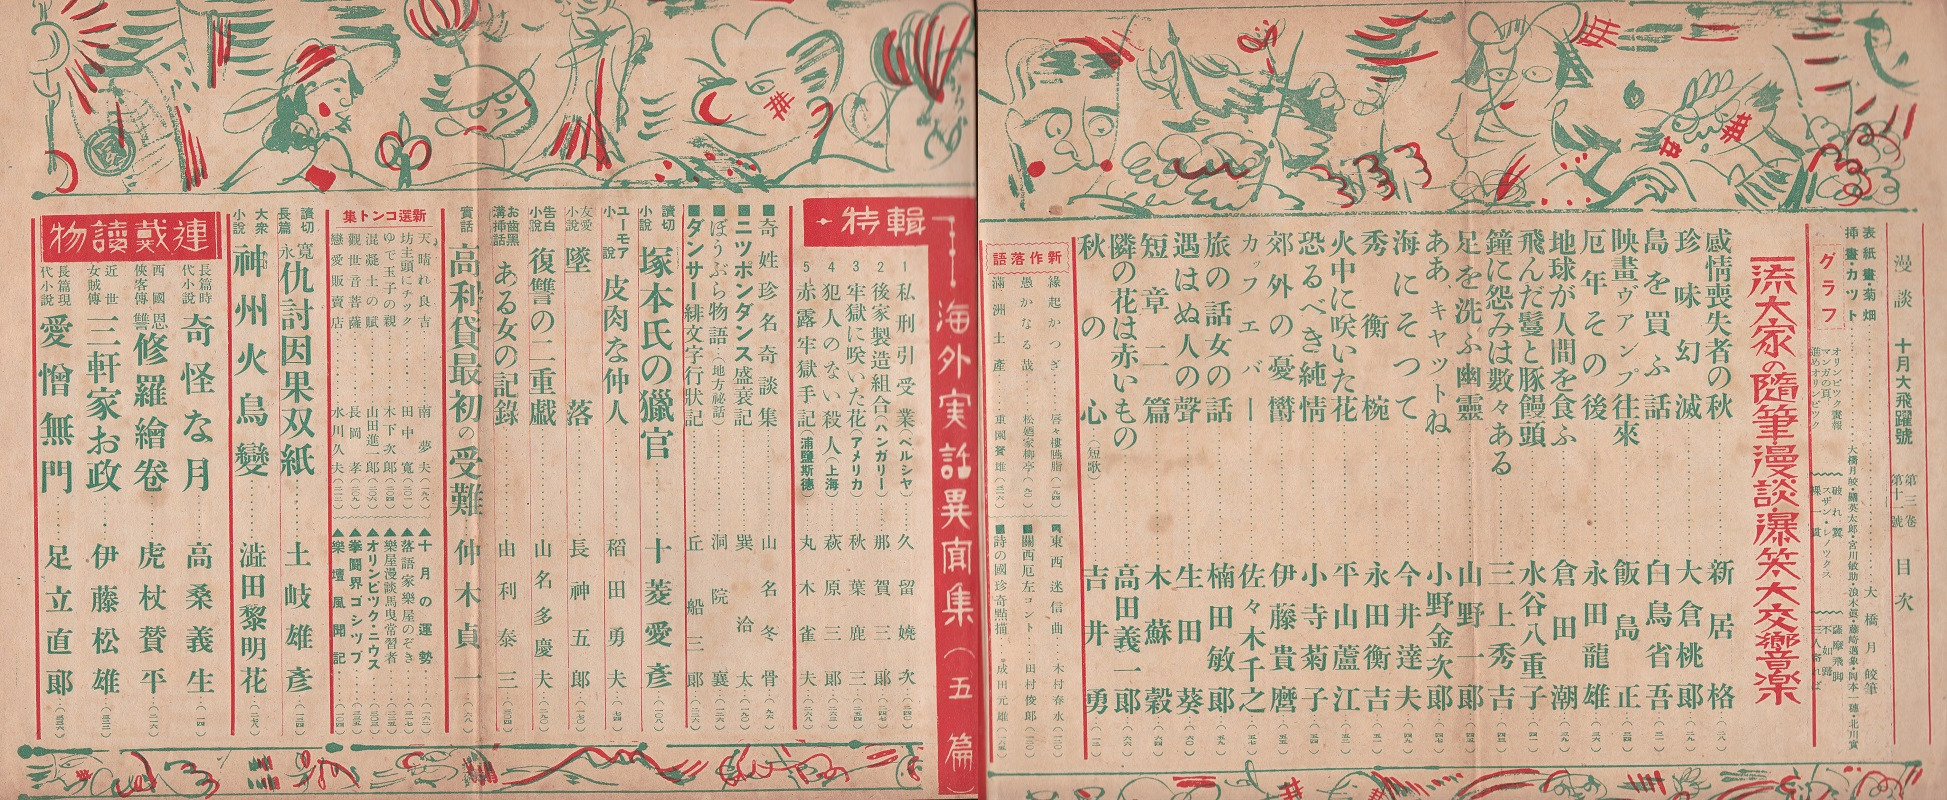 漫談 十月大飛躍號 第三卷 第十一號 目次
表紙畫・菊畑………大橋月皎筆
挿畫・カツト………大橋月皎・關英太郎・宮川敏助・
グラフ
オリンピツク畫報
マンガの頁
進めオリンピツク
破れ翼
スザン・レノツクス
裸一貫
薩摩飛脚
不如歸
三人寄れば
一流大家の隨筆漫談・爆笑大交響樂
感情喪失者の秋………新居格
珍味幻滅………大倉桃郎
島を買ふ話………白鳥省吾
映畫ヴアンプ往來………飯島正
厄年その後………永田龍雄
地球が人間を食ふ………倉田潮
飛んだ鬘と豚饅頭………水谷八重子
鐘に怨みは數々ある………三上秀吉
足を洗ふ幽靈………山野一郎
ああ、キヤツトね………小野金次郎
海にそつて………今井達夫
秀衡椀………永田衡吉
火中に咲いた花………平山蘆江
恐るべき純情………小寺菊子
郊外の憂欝………伊藤貴麿
カツフエバー………佐々木千之
旅の話女の話………楠田敏郎
遇はぬ人の聲………生田葵
短章二篇………木蘇穀
隣の花は赤いもの………高田義一郎
秋の心(短歌)………吉井勇
新作落語
緣起かつぎ
愚かなる哉………松廼家柳亭
滿洲土產………重園賢雄
■東西迷信曲………木村春水
■關西厄左コント………田村俊郎
■詩の國珍奇點描………成田元雄
特輯 海外実話異聞集(五篇)
1 私刑引受業(ペルシヤ)………久留嬈次
2 後家製造組合(ハンガリー)………那賀三郎
3 牢獄に咲いた花(アメリカ)………秋葉鹿三
4 犯人のない殺人(上海)………萩原三郎
5 赤露牢獄手記(浦鹽斯德)………丸木雀夫
■奇姓珍名奇談集………山名冬骨
■ニツポンダンス盛衰記………巽洽太
■ほうぶら物語(地方祕話)………洞院襄
■ダンサー緋文字行狀記………丘船三郎
讀切小說 塚本氏の獵官………十菱愛彥
ユーモア小說 皮肉な仲人………稻田勇夫
友愛小說 墜落………長神五郎
告白小說 復讐の二重戲………山名多慶夫
お歯黑溝挿話 ある女の記錄………由利泰三
實話 高利貸最初の受難………仲木貞一
新選コント集
天晴れ良吉………南夢夫
坊主頭にチツク………田中寬
ゆで玉子の親………木下次郎
混凝土の賦………山田進二郎
觀世音菩薩………長岡孝
戀愛販賣店………水川久夫
▲十月の運勢
▲落語家樂屋のぞき
▲樂屋漫談馬曳常習者
▲オリンピツク・ニウス
▲拳鬪界ゴシツプ
▲樂壇風聞記
讀切長篇 寬永仇討因果双紙………土岐雄彥
大衆小說 神州火鳥變………澁田黎明花
連載讀物
長篇時代小說 奇怪な月………高桑義生
西國俠客傳 恩讐修羅繪卷………虎杖贊平
近世女賊傳 三軒家お政………伊藤松雄
長篇現代小說 愛憎無門………足立直郎